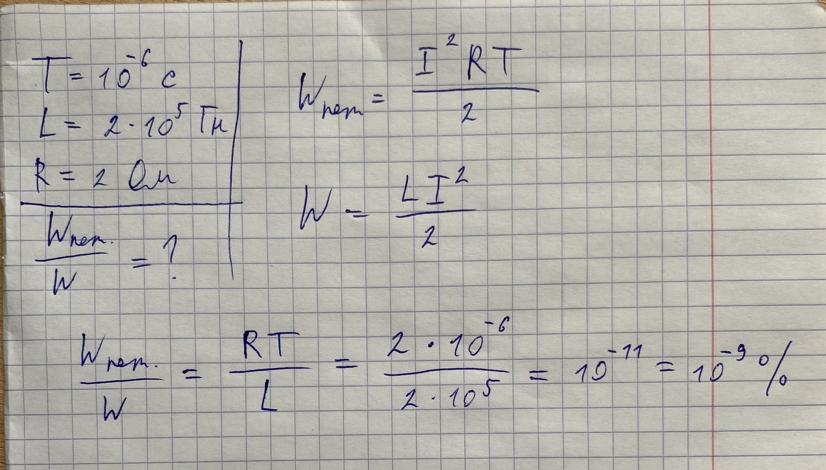 T = 10⁻⁶ с
L = 2 · 10⁵ Гн
R = 2 Ом
Wпот. / W = ?
Wпот = I²RT / 2
W = LI² / 2
Wпот. / W = RT / L = 2 · 10⁻⁶ / 2 · 10⁵ = 10⁻¹¹ = 10⁻⁹ %